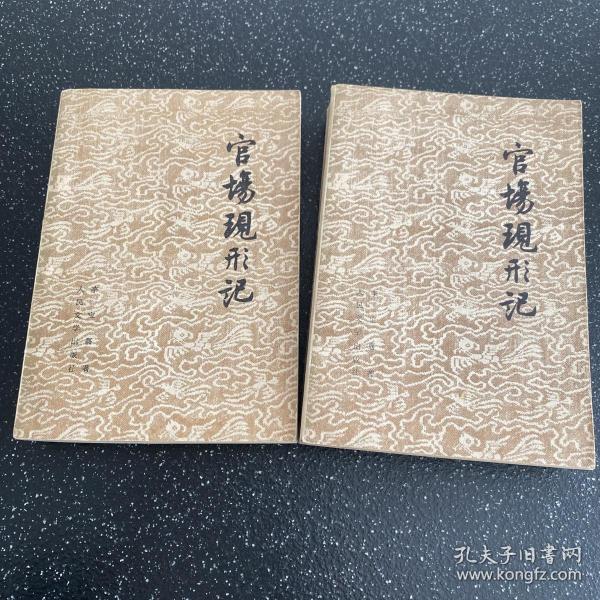 官場現形记
李宝嘉著
人民文学出版社
官場現形记
李宝嘉著
人民文学出版社
孔夫子旧書网
www.kongfz.com